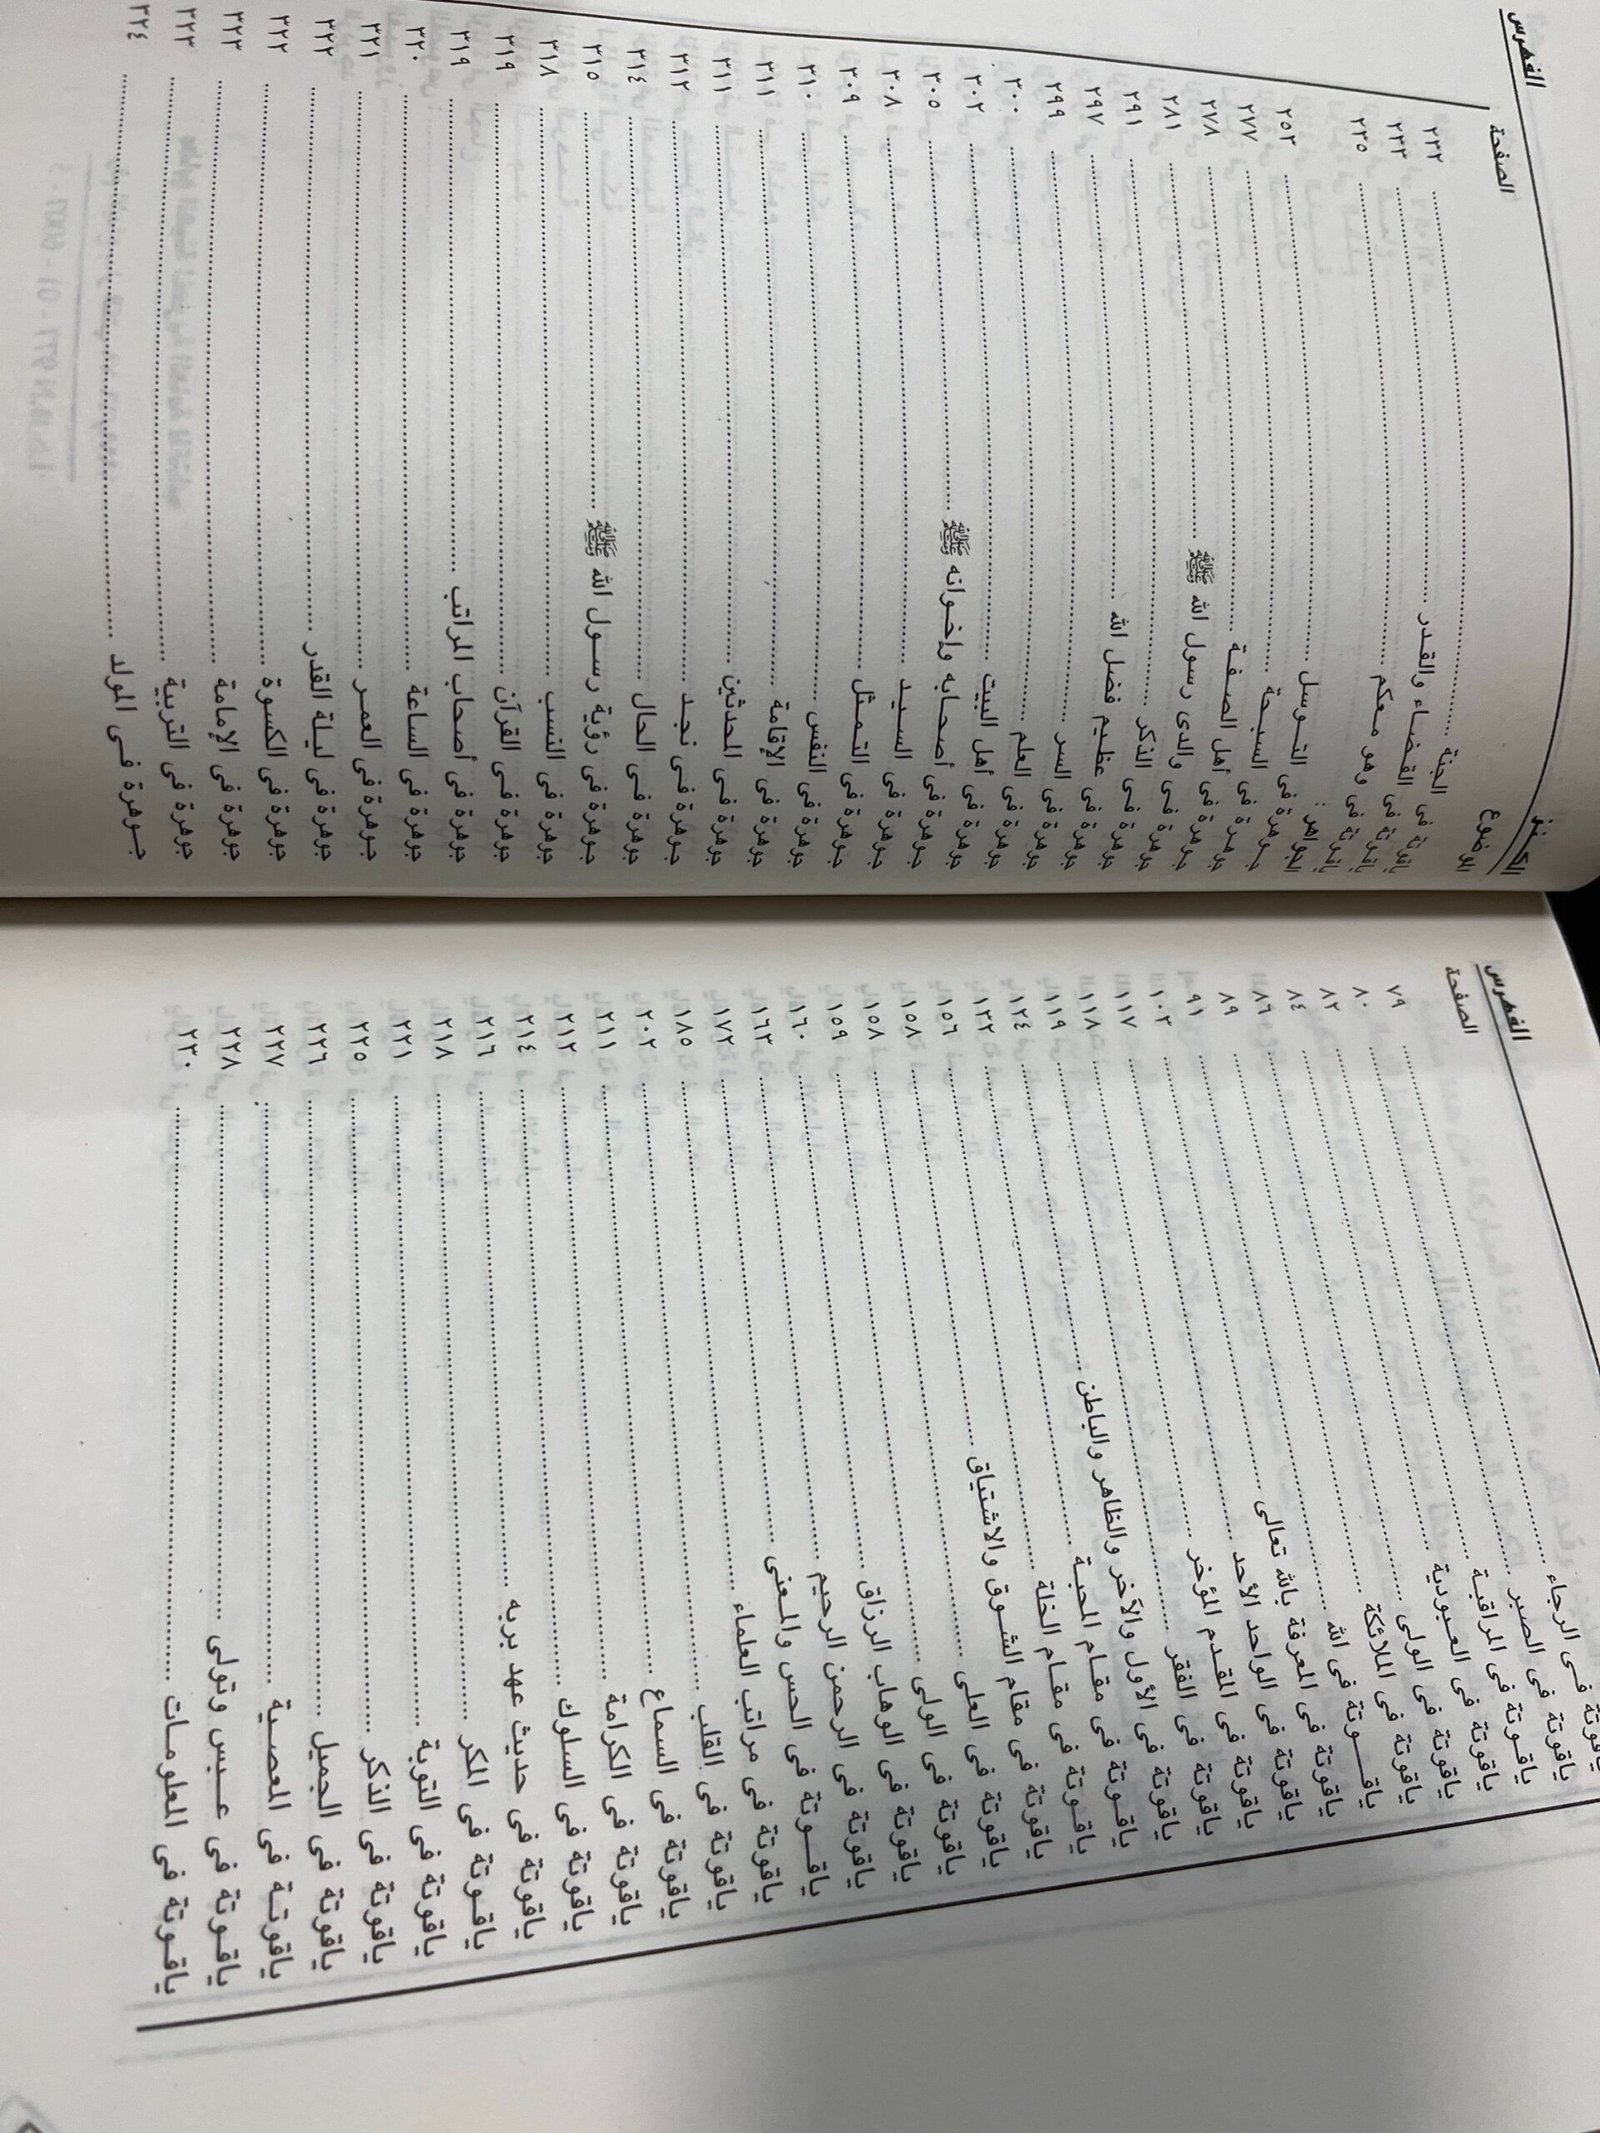 الفهرس
الصفحة
ياقوتة فى الرجاء ٧٩
ياقوتة فى الصبر ٨٠
ياقوتة فى المراقبة ٨٢
ياقوتة فى العبودية ٨٤
ياقوتة فى الولى ٨٦
ياقوتة فى الملائكة ٨٩
ياقوتة فى الله ٩١
ياقوتة فى المعرفة بالله تعالى ١٠٣
ياقوتة فى الواحد الأحد ١١٧
ياقوتة فى المقدم المؤخر ١١٨
ياقوتة فى الفقر ١١٩
ياقوتة فى الأول والآخر والظاهر والباطن ١٢٤
ياقوتة فى مقام المحبة ١٣٢
ياقوتة فى مقام الخلة ١٥٦
ياقوتة فى مقام الشوق والاشتياق ١٥٨
ياقوتة فى العلى ١٥٨
ياقوتة فى الولى ١٥٩
ياقوتة فى الوهاب الرزاق ١٦٠
ياقوتة فى الرحمن الرحيم ١٦٣
ياقوتة فى الحس والمعنى ١٧٢
ياقوتة فى مراتب العلماء ١٨٥
ياقوتة فى القلب ٢٠٢
ياقوتة فى السماع ٢١١
ياقوتة فى الكرامة ٢١٢
ياقوتة فى السلوك ٢١٤
ياقوتة فى حديث عهد بربه ٢١٦
ياقوتة فى المكر ٢١٨
ياقوتة فى التوبة ٢٢١
ياقوتة فى الذكر ٢٢٥
ياقوتة فى الجميل ٢٢٦
ياقوتة فى المعصية ٢٢٧
ياقوتة فى عبس وتولى ٢٢٨
ياقوتة فى المعلومات ٢٣٠
الفهرس
الموضوع الصفحة
ياقوتة فى الجنة ٢٣٢
ياقوتة فى القضاء والقدر ٢٣٣
ياقوتة فى وهو معكم ٢٣٥
الجواهر:
جوهرة فى التوسل ٢٥٣
جوهرة فى السبحة ٢٧٧
جوهرة فى أهل الصفة ٢٧٨
جوهرة فى والدى رسول الله ﷺ ٢٨١
جوهرة فى الذكر ٢٩١
جوهرة فى عظيم فضل الله ٢٩٧
جوهرة فى السر ٢٩٩
جوهرة فى العلم ٣٠٠
جوهرة فى أهل البيت ٣٠٢
جوهرة فى أصحابه وإخوانه ﷺ ٣٠٥
جوهرة فى السيد ٣٠٨
جوهرة فى التمثل ٣٠٩
جوهرة فى النفس ٣١٠
جوهرة فى الإقامة ٣١١
جوهرة فى المحدثين ٣١١
جوهرة فى نجد ٣١٢
جوهرة فى الحال ٣١٤
جوهرة فى رؤية رسول الله ﷺ ٣١٥
جوهرة فى النسب ٣١٨
جوهرة فى القرآن ٣١٩
جوهرة فى أصحاب المراتب ٣١٩
جوهرة فى الساعة ٣٢٠
جوهرة فى العمر ٣٢١
جوهرة فى ليلة القدر ٣٢٢
جوهرة فى الكسوة ٣٢٢
جوهرة فى الإمامة ٣٢٣
جوهرة فى التربية ٣٢٣
جوهرة فى المولد ٣٢٤